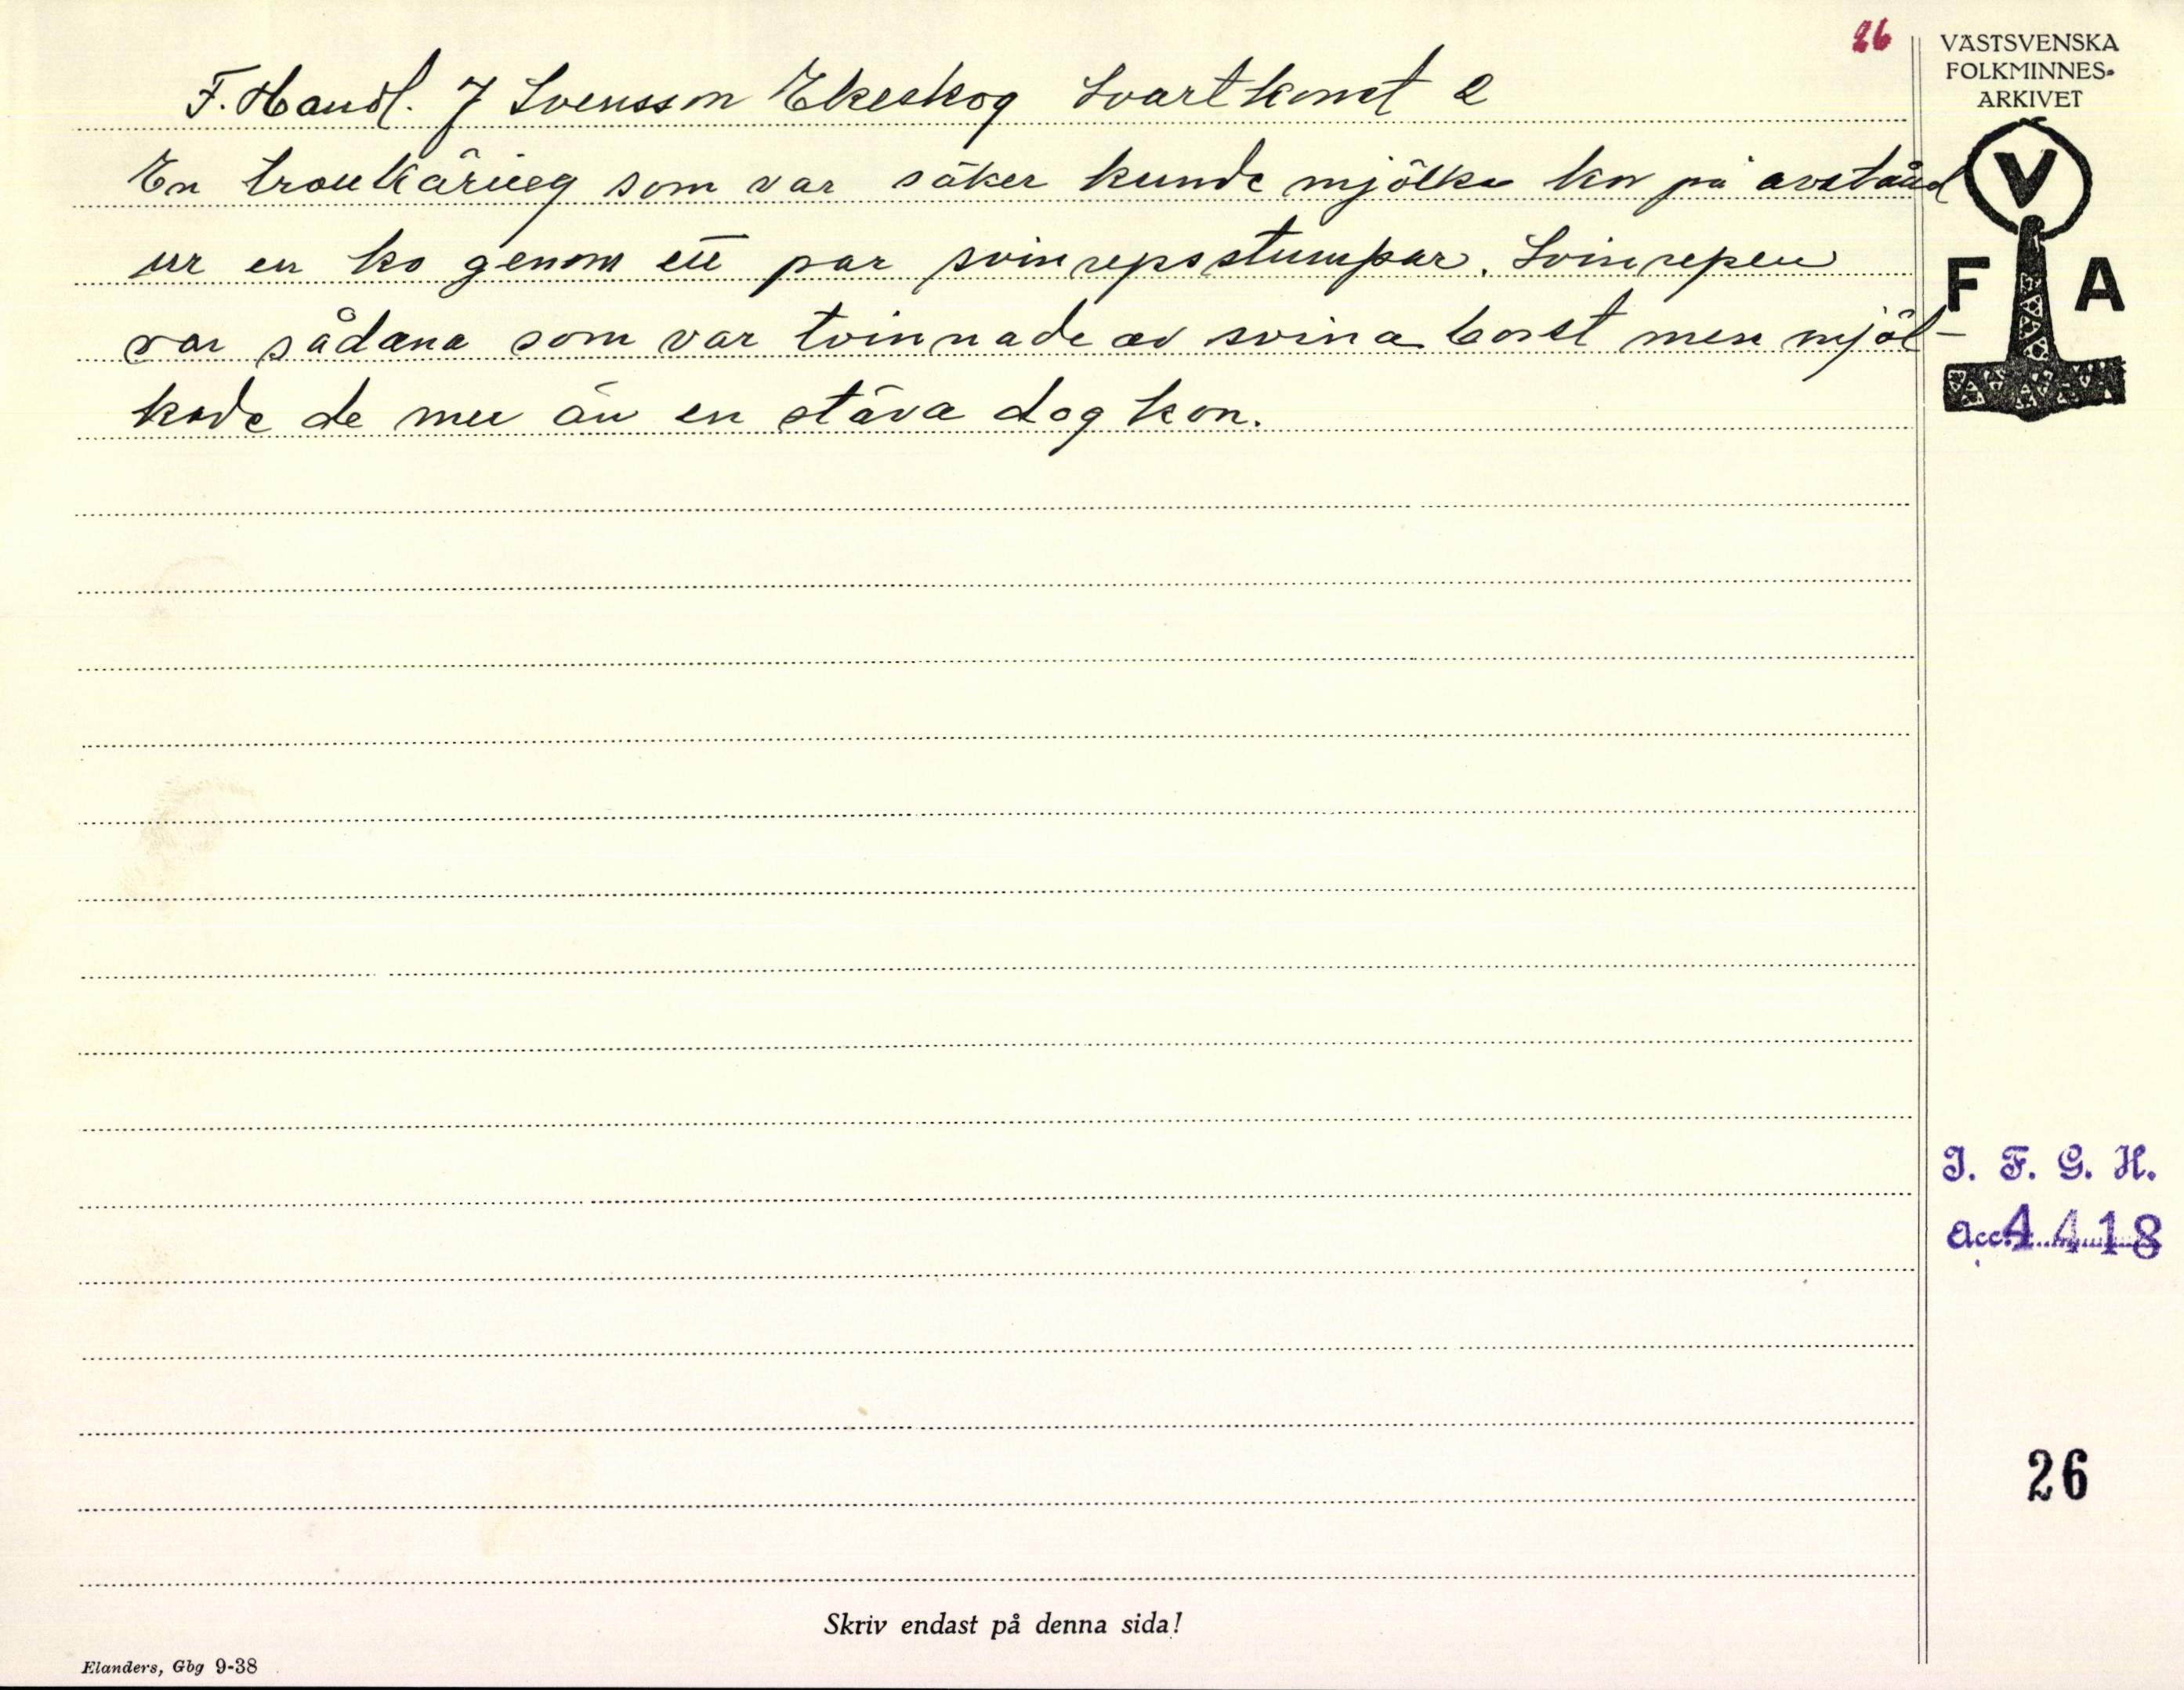 26
VÄSTSVENSKA
FOLKMINNES-
ARKIVET
V
F A
F. Handl. J Svensson Ekeskog Svartkonst 2
En trollkäring som var säker kunde mjölka kor på avstånd
ur en ko genom ett par svinrepsstumpar. Svinrepen
var sådana som var tvinnade av svinaborst men mjöl-
kade de mer än en stäva dog kon.
I. F. G. H.
Acc. 4418
26
Skriv endast på denna sida!
Elanders, Gbg 9-38